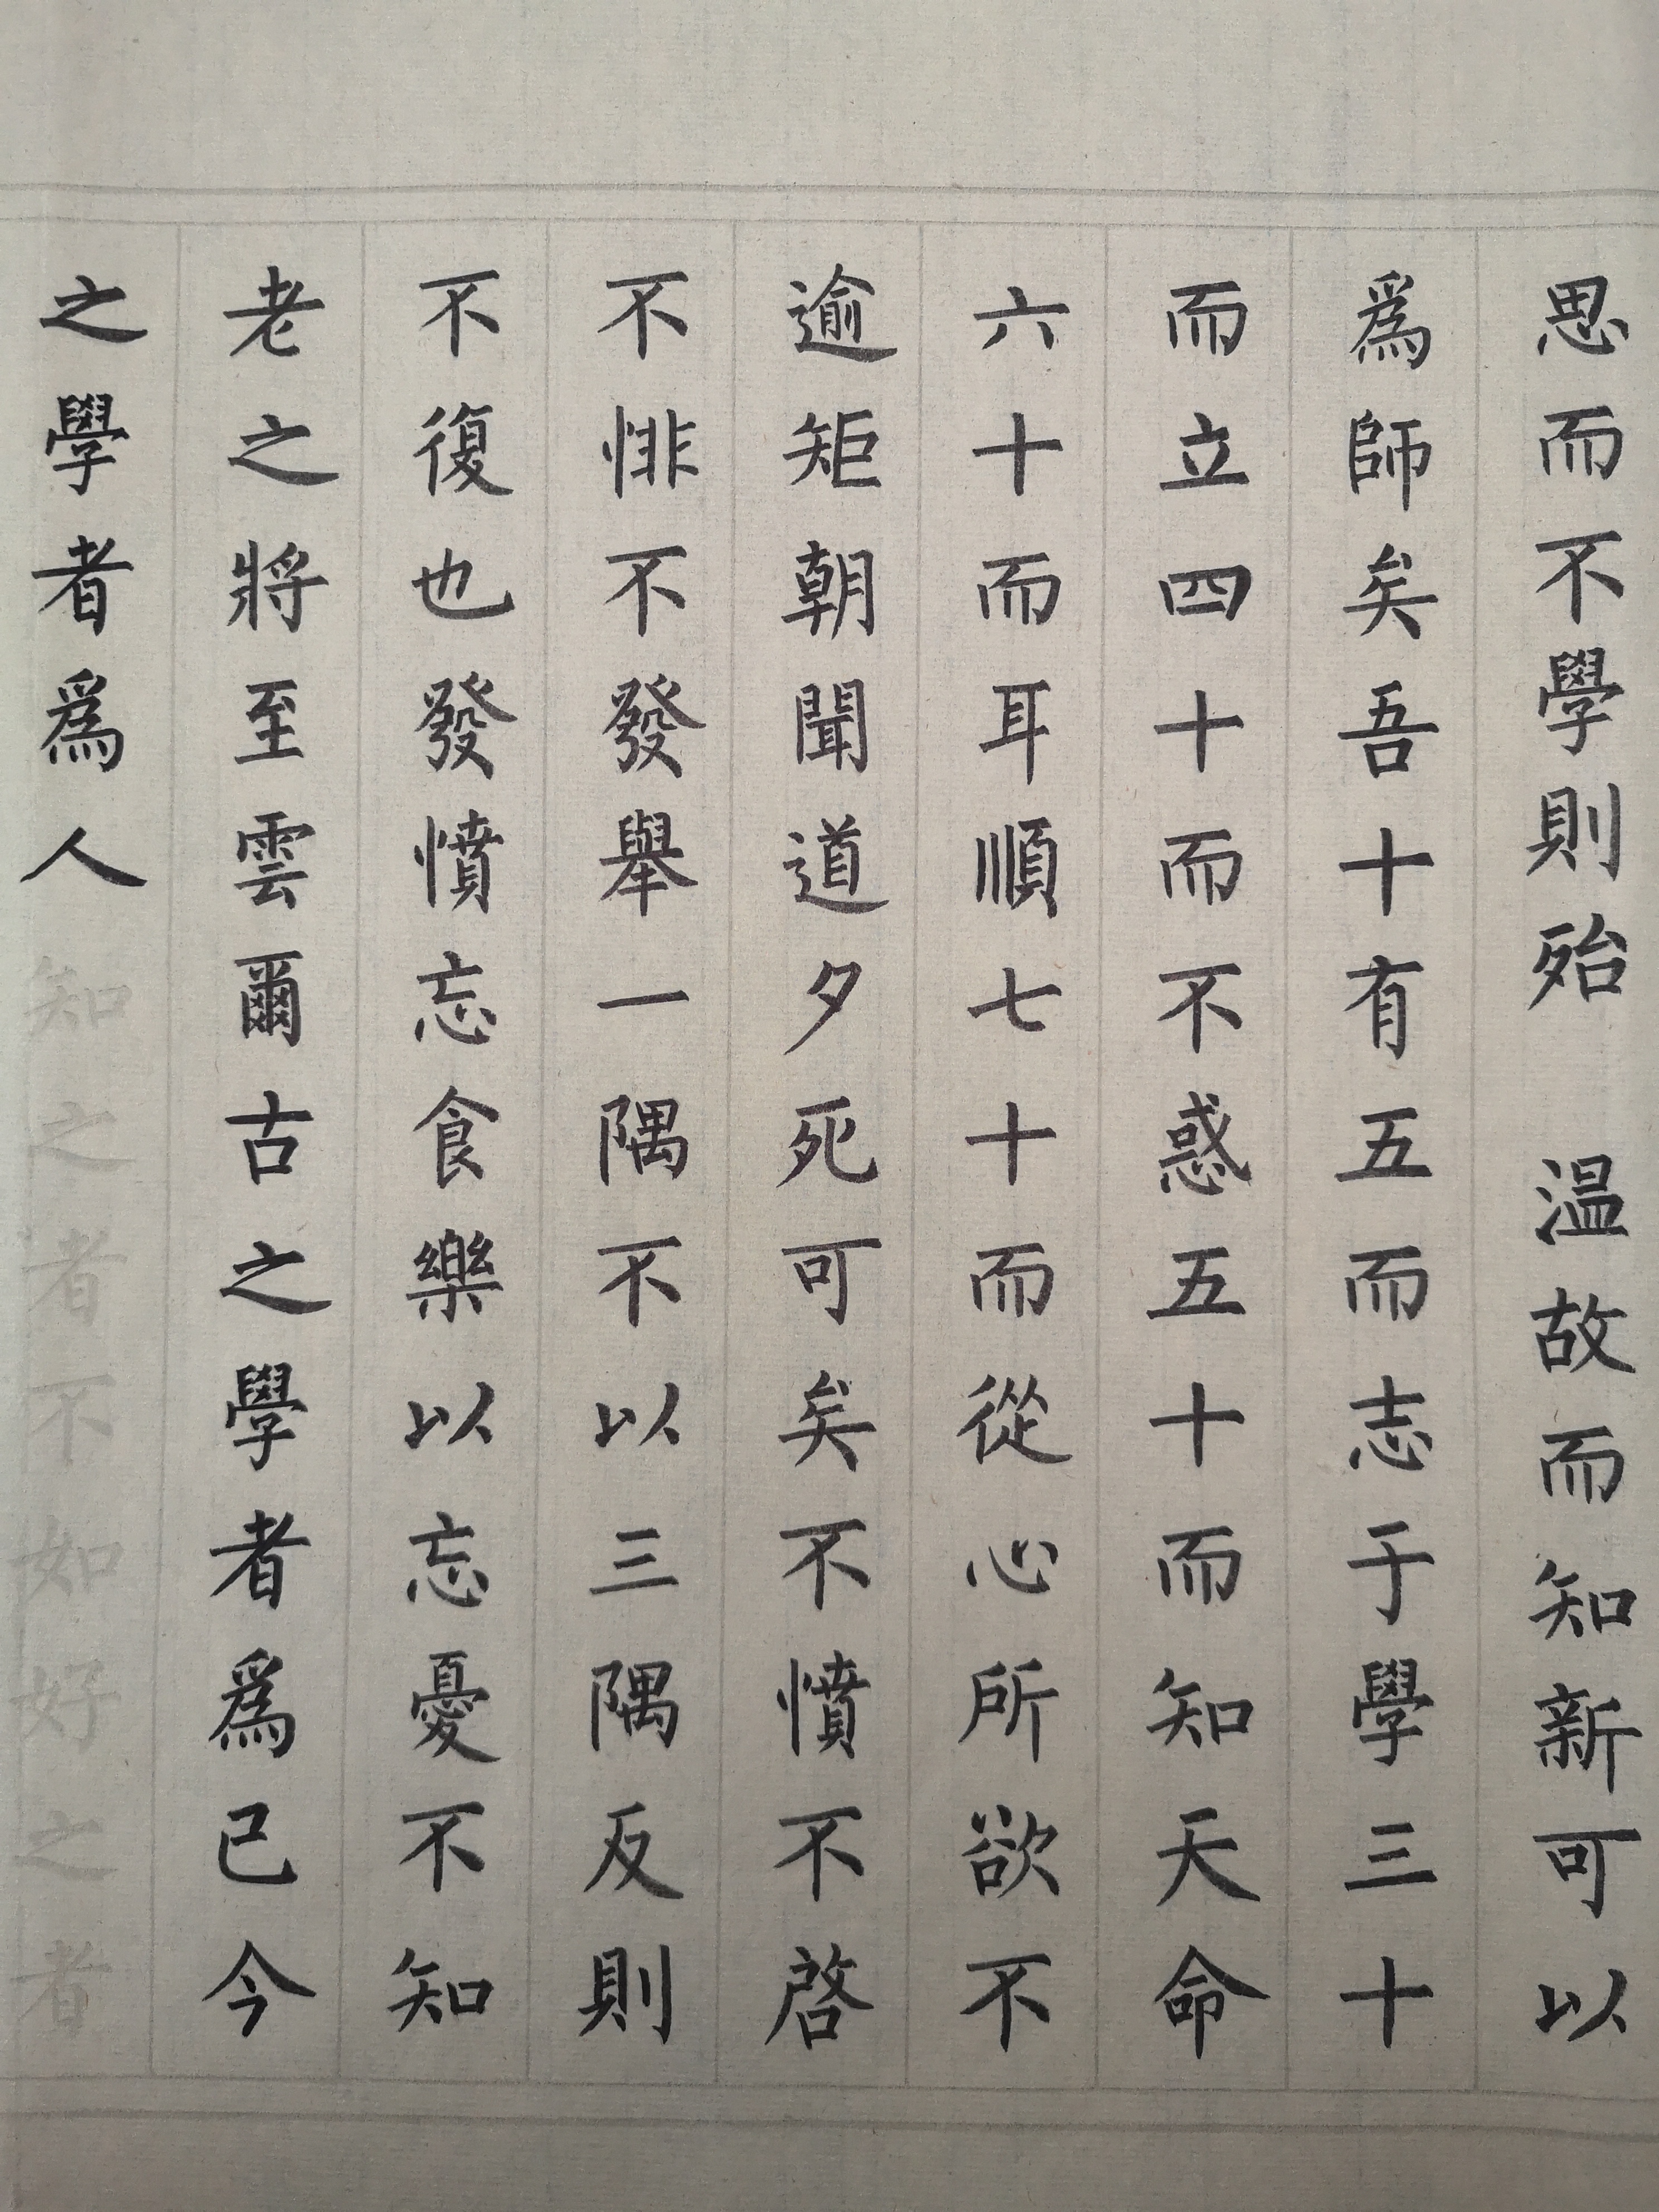 思而不學則殆 温故而知新可以
爲師矣吾十有五而志于學三十
而立四十而不惑五十而知天命
六十而耳順七十而從心所欲不
逾矩朝聞道夕死可矣不憤不啓
不悱不發舉一隅不以三隅反則
不復也發憤忘食樂以忘憂不知
老之將至雲爾古之學者爲己今
之學者爲人知之者不如好之者